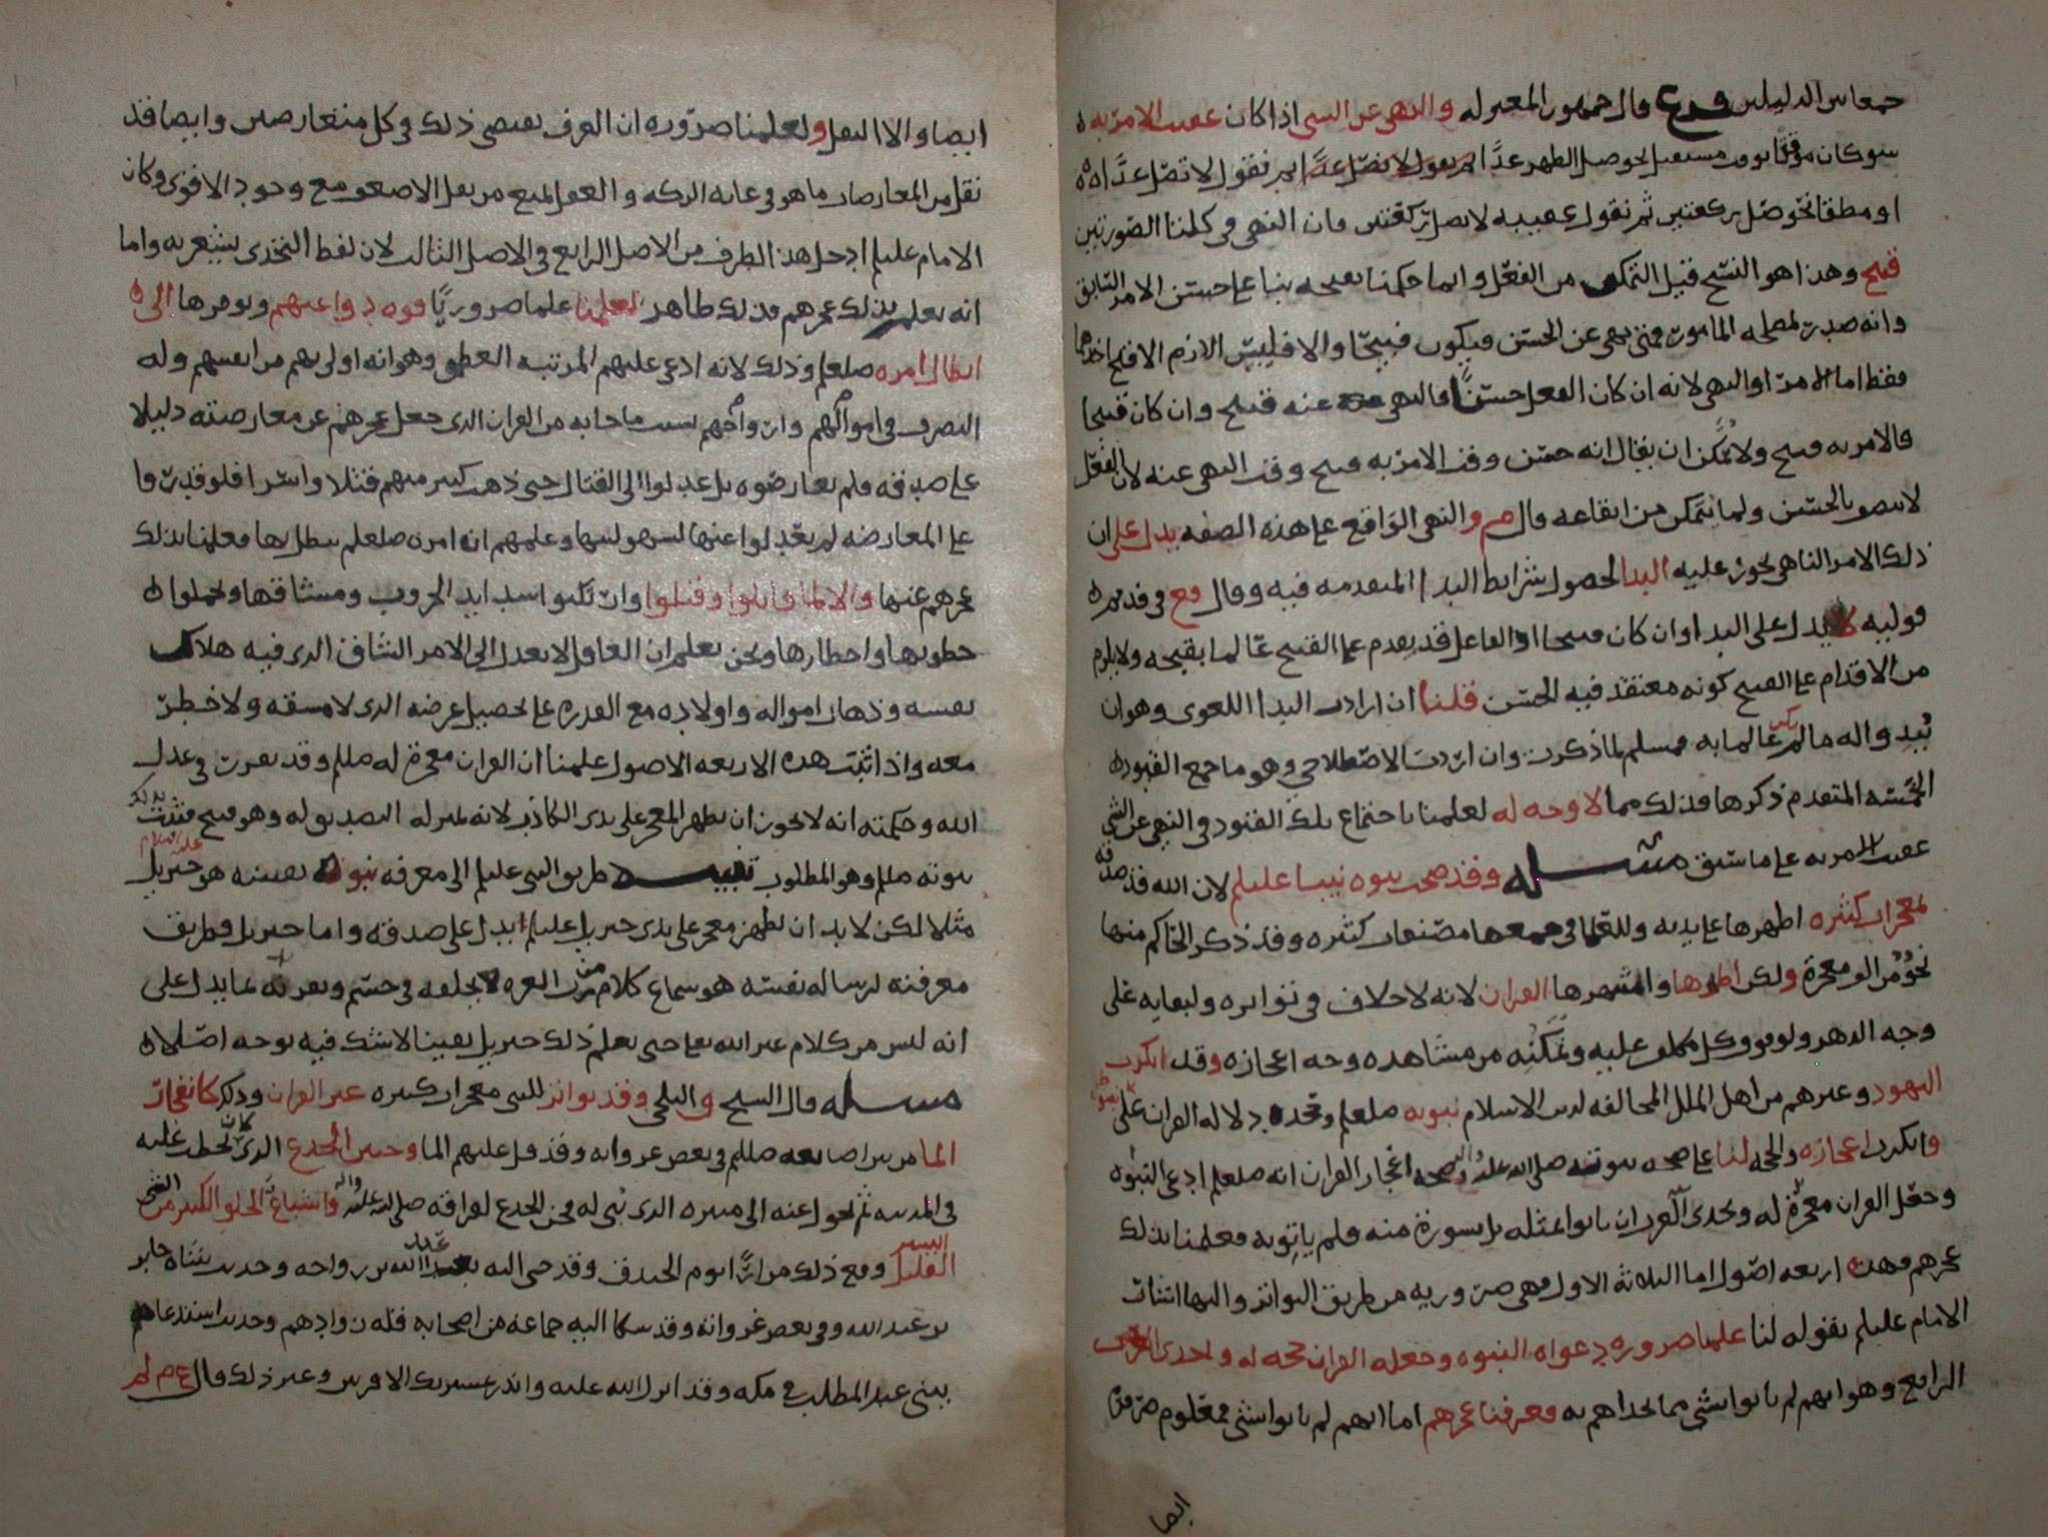 جمعا بين الدليلين فرع قال جمهور المعتزله والنهي عن الشي اذا كان عقيب الامر به
سوى كان موقتا بوقت مستقبل نحو صل الظهر غدًا ثم نقول لا تصل غدًا
او مطلقا نحو صل ركعتين ثم نقول عقيبه لا تصل ركعتين فان النهي في كلتا الصورتين
قبيح وهذا هو النسخ قبل التمكن من الفعل وانما حكمنا بقبحه بنا على حسن الامر السابق
وانه صدر لمصلحه المامور فمتى نهى عن الحسن فيكون قبيحًا والا فليس اللازم الا قبح احدهما
فقط اما الامر او النهي لانه ان كان الفعل حسنًا فالنهي عنه قبيح وان كان قبيحا
فالامر به قبيح ولا يمكن ان يقال انه حسن وقت الامر به قبيح وقت النهي عنه لان الفعل
لا يتصف بالحسن ولما يتمكن من ايقاعه قال م والنهي الواقع على هذه الصفه يدل على ان
ذلك الامر الناهي يجوز عليه البدا لحصول شرايط البدا المتقدمه فيه وقال في قديم
قوليه لا يدل على البدا وان كان قبيحا اذ الفاعل قد يقدم على القبيح عالما بقبحه ولا يلزم
من الاقدام على القبيح كونه معتقد فيه الحسن قلنا ان اردت البدا اللغوي وهو ان
يبدو له ما لم يكن عالما به فمسلم لما ذكرت وان اردت الاصطلاحي وهو ما جمع القيود
الخمسه المتقدم ذكرها فذلك مما لا وجه له لعلمنا باجتماع تلك القيود في النهي عن الشي
عقيب الامر به على ما سبق مسئله وقد صحت نبوه نبينا عليلم لان الله قد صدقه
بمعجزات كثيره اظهرها على يديه وللعلما في جمعها مصنفات كثيره وقد ذكر الحاكم منها
نحوًا من الف معجزة ولكن اظهرها واشهرها القران لانه لا خلاف في تواتره ولبقايه على
وجه الدهر ولوقوف كل مكلف عليه وتمكنه من مشاهده وجه اعجازه وقد انكرت
اليهود وغيرهم من اهل الملل المخالفه لدين الاسلام نبوته صلعلم وتحد دلاله القران على نبوته
وانكرت اعجازه والحجه لنا على صحه نبوته صلى الله عليه واله وصحه اعجاز القران انه صلعلم ادعى النبوه
وجعل القران معجزة له وتحدى العرب ان ياتوا بمثله بل بسورة منه فلم ياتوا به فعلمنا بذلك
عجزهم فهذه اربعه اصول اما الثلاثه الاول فهي ضروريه من طريق التواتر واليها اشار
الامام عليلم بقوله لنا علمنا ضروره دعواه النبوه وجعله القران حجه له وتحدى العرب
الرابع وهو انهم لم ياتوا بشي مما تحداهم به فعرفنا عجزهم اما انهم لم ياتوا بشي فمعلوم ضرورة
ايضا
ايضا والا النقل ولعلمنا ضروره ان العرف يقتضي ذلك في كل متعارضين وايضا فقد
نقل من المعارضات ما هو في غايه الركه والعقل يمنع من نقل الاضعف مع وجود الاقوى وكان
الامام عليلم ادخل هذا الطرف من الاصل الرابع في الاصل الثالث لان لفظ التحدي يشعر به واما
انه يعلم بذلك عجزهم فذلك ظاهر لعلمنا علما ضروريًا قوه دواعيهم وتوفرها الى
ابطال امره صلعلم وذلك لانه ادعى عليهم المرتبه العظمى وهو انه اولى بهم من انفسهم وله
التصرف في اموالهم وارواحهم بسبب ما جا به من القران الذي جعل عجزهم عن معارضته دليلا
على صدقه فلم يعارضوه بل عدلوا الى القتال حتى ذهب كثير منهم قتلا واسرا فلو قدروا
على المعارضه لم يعدلوا عنها لسهولتها وعلمهم انه امره صلعلم يبطل بها فعلمنا بذلك
عجزهم عنها والا لما قاتلوا وقتلوا وارتكبوا شدايد الحروب ومشاقها وتحملوا
خطوبها واخطارها ونحن نعلم ان العاقل لا يعدل الى الامر الشاق الذي فيه هلاك
نفسه وذهاب امواله واولاده مع القدره على تحصيل غرضه الذي لا مشقه ولا خطر
معه واذا ثبتت هذه الاربعه الاصول علمنا ان القران معجزة له صللم وقد تقرر في عدل
الله وحكمته انه لا يجوز ان يظهر المعجز على يدي الكاذب لانه بمنزله التصديق له وهو قبيح فثبت بذلك
نبوته صللم وهو المطلوب تنبيه طريق النبي عليلم الى معرفه نبوة نفسه هو جبريل عليه السلام
مثلا لكن لا بد ان يظهر معجز على يدي جبريل عليلم ليدل على صدقه واما جبريل فطريق
معرفته لرساله نفسه هو سماع كلام من رب العزه يخلقه في جسم ويقرنه بما يدل على
انه ليس من كلام غير الله تعالى حتى يعلم ذلك جبريل يقينا لا شك فيه بوجه اصلا
مسئله قال الشيخ والبلخي وقد تواتر للنبي معجزات كثيره غير القران وذلك كانفجار
الما من بين اصابعه صللم في بعض غزواته وقد قل عليهم الما وحنين الجذع الذي كان يخطب عليه
في المدينه ثم تحول عنه الى منبره الذي بُني له فحن الجذع لفراقه صلى الله عليه واله واشباع الخلق الكثير من الشي اليسير
القليل وقع ذلك مرارًا يوم الخندق وقد جي اليه عبد الله بن رواحه وحديث شاة جابر
بن عبد الله وفي بعض غزواته وقد شكا اليه جماعه من اصحابه قله زوادهم وحديث استدعاهم
بني عبد المطلب في مكه وقد انزل الله عليه وانذر عشيرتك الاقربين وغير ذلك قال ع م لم